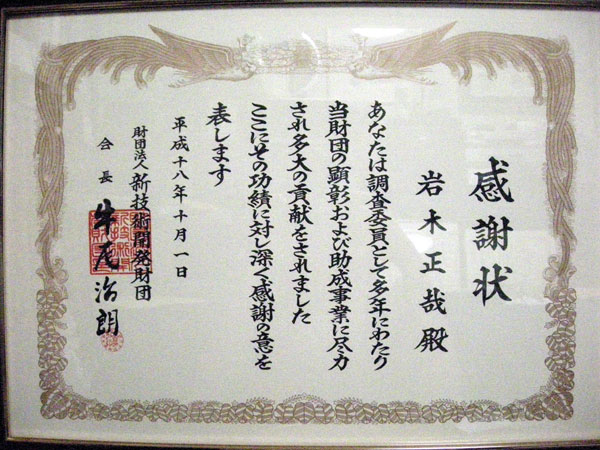 感謝状
岩木正哉殿
あなたは調査委員として多年にわたり
当財団の顕彰および助成事業に尽力
され多大の貢献をされました
ここにその功績に対し深く感謝の意を
表します
平成十八年十月一日
財団法人 新技術開発財団
会長 牛尾治朗